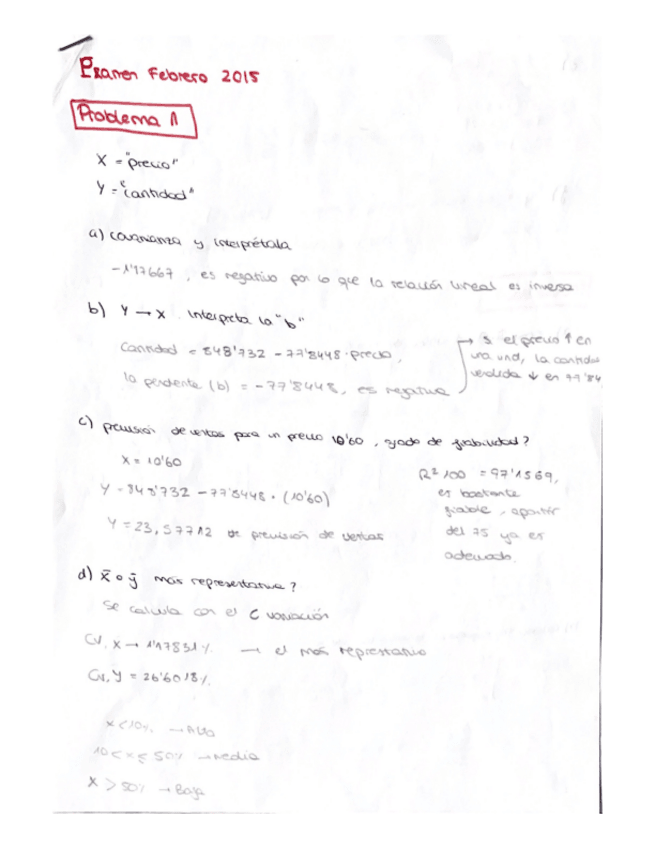 Examen Febrero 2015
Problema 1
X = "precio"
Y = "cantidad"
a) covarianza y interprétala
-1'17667, es negativo por lo que la relación lineal es inversa
b) Y → X interpreta la "b"
Cantidad = 848'732 - 77'8448 · precio.
la pendiente (b) = -77'8448, es negativa
→ si el precio ↑ en
una und, la cantidad
vendida ↓ en 77'84
c) previsión de ventas para un precio 10'60, grado de fiabilidad?
X = 10'60
Y = 848'732 - 77'8448 · (10'60)
Y = 23,57712 de previsión de ventas
R² 100 = 97'1569,
es bastante
fiable, apartir
del 75 ya es
adecuado.
d) x̄ o ȳ más representativa?
Se calcula con el C variación
CV. X → 1'17831% → el más representativo
CV, Y = 26'6018%.
X < 10% → Alta
10 < x ≤ 50% → Media
X > 50% → Baja